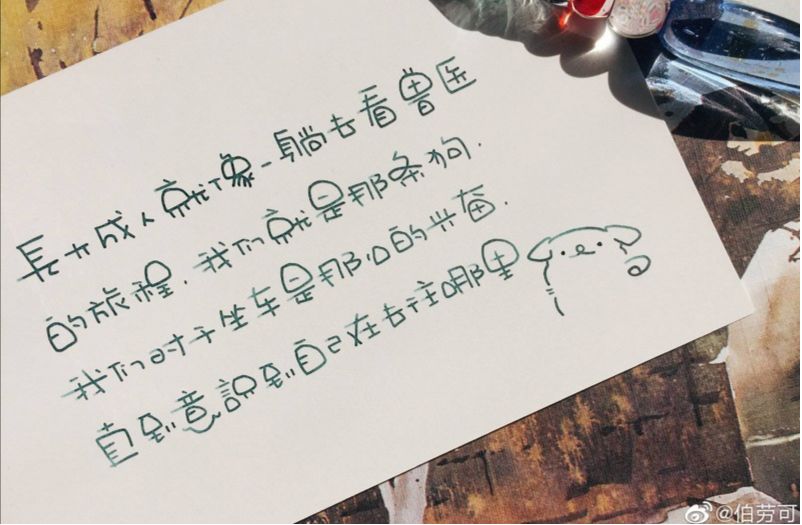 長大成人就像一趟去看兽医
的旅程.我们就是那条狗.
我们对于坐车是那么的兴奋.
直到意識到自己在去往哪里
@伯劳可